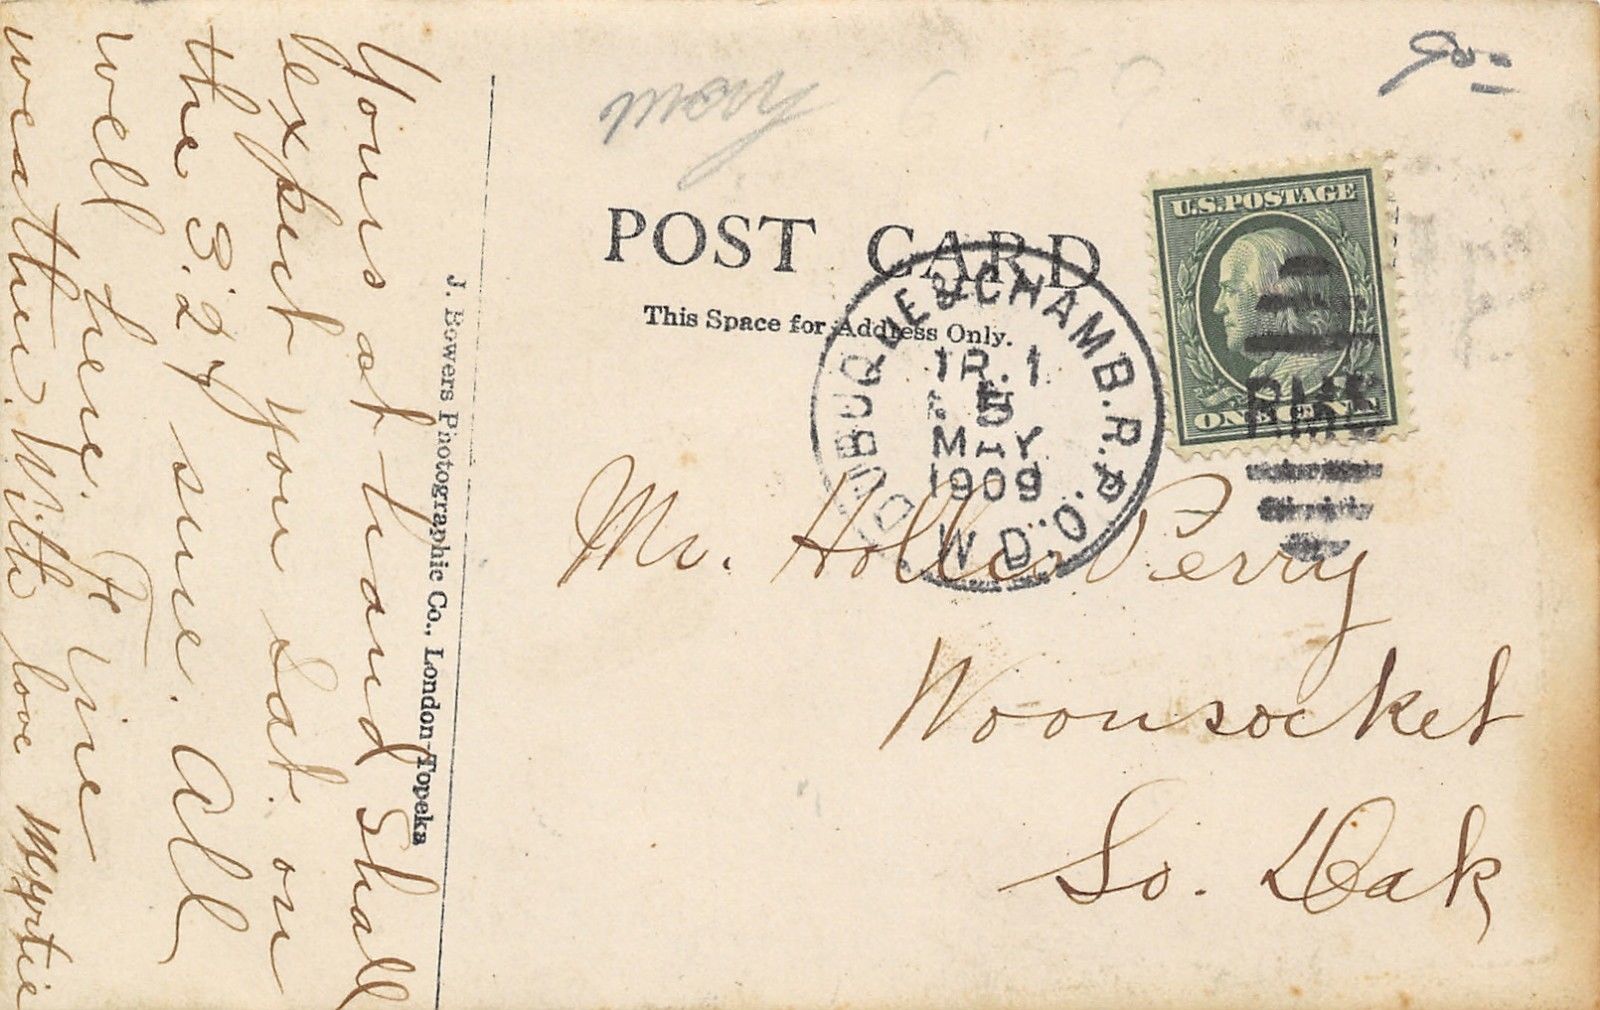 Yours at hand Shall
expect you Sat. on
the 3:27 sure. All
well here. Fine
weather. With love Myrtie
J. Bowers Photographic Co., London-Topeka
POST CARD
This Space for Address Only.
U.S. POSTAGE
ONE CENT
DUBUQUE & CHAMB. R.P.O.
TR. 1
5
MAY
1909
W.D.
RMS
Mr. Hollis Perry
Woonsocket
So. Dak